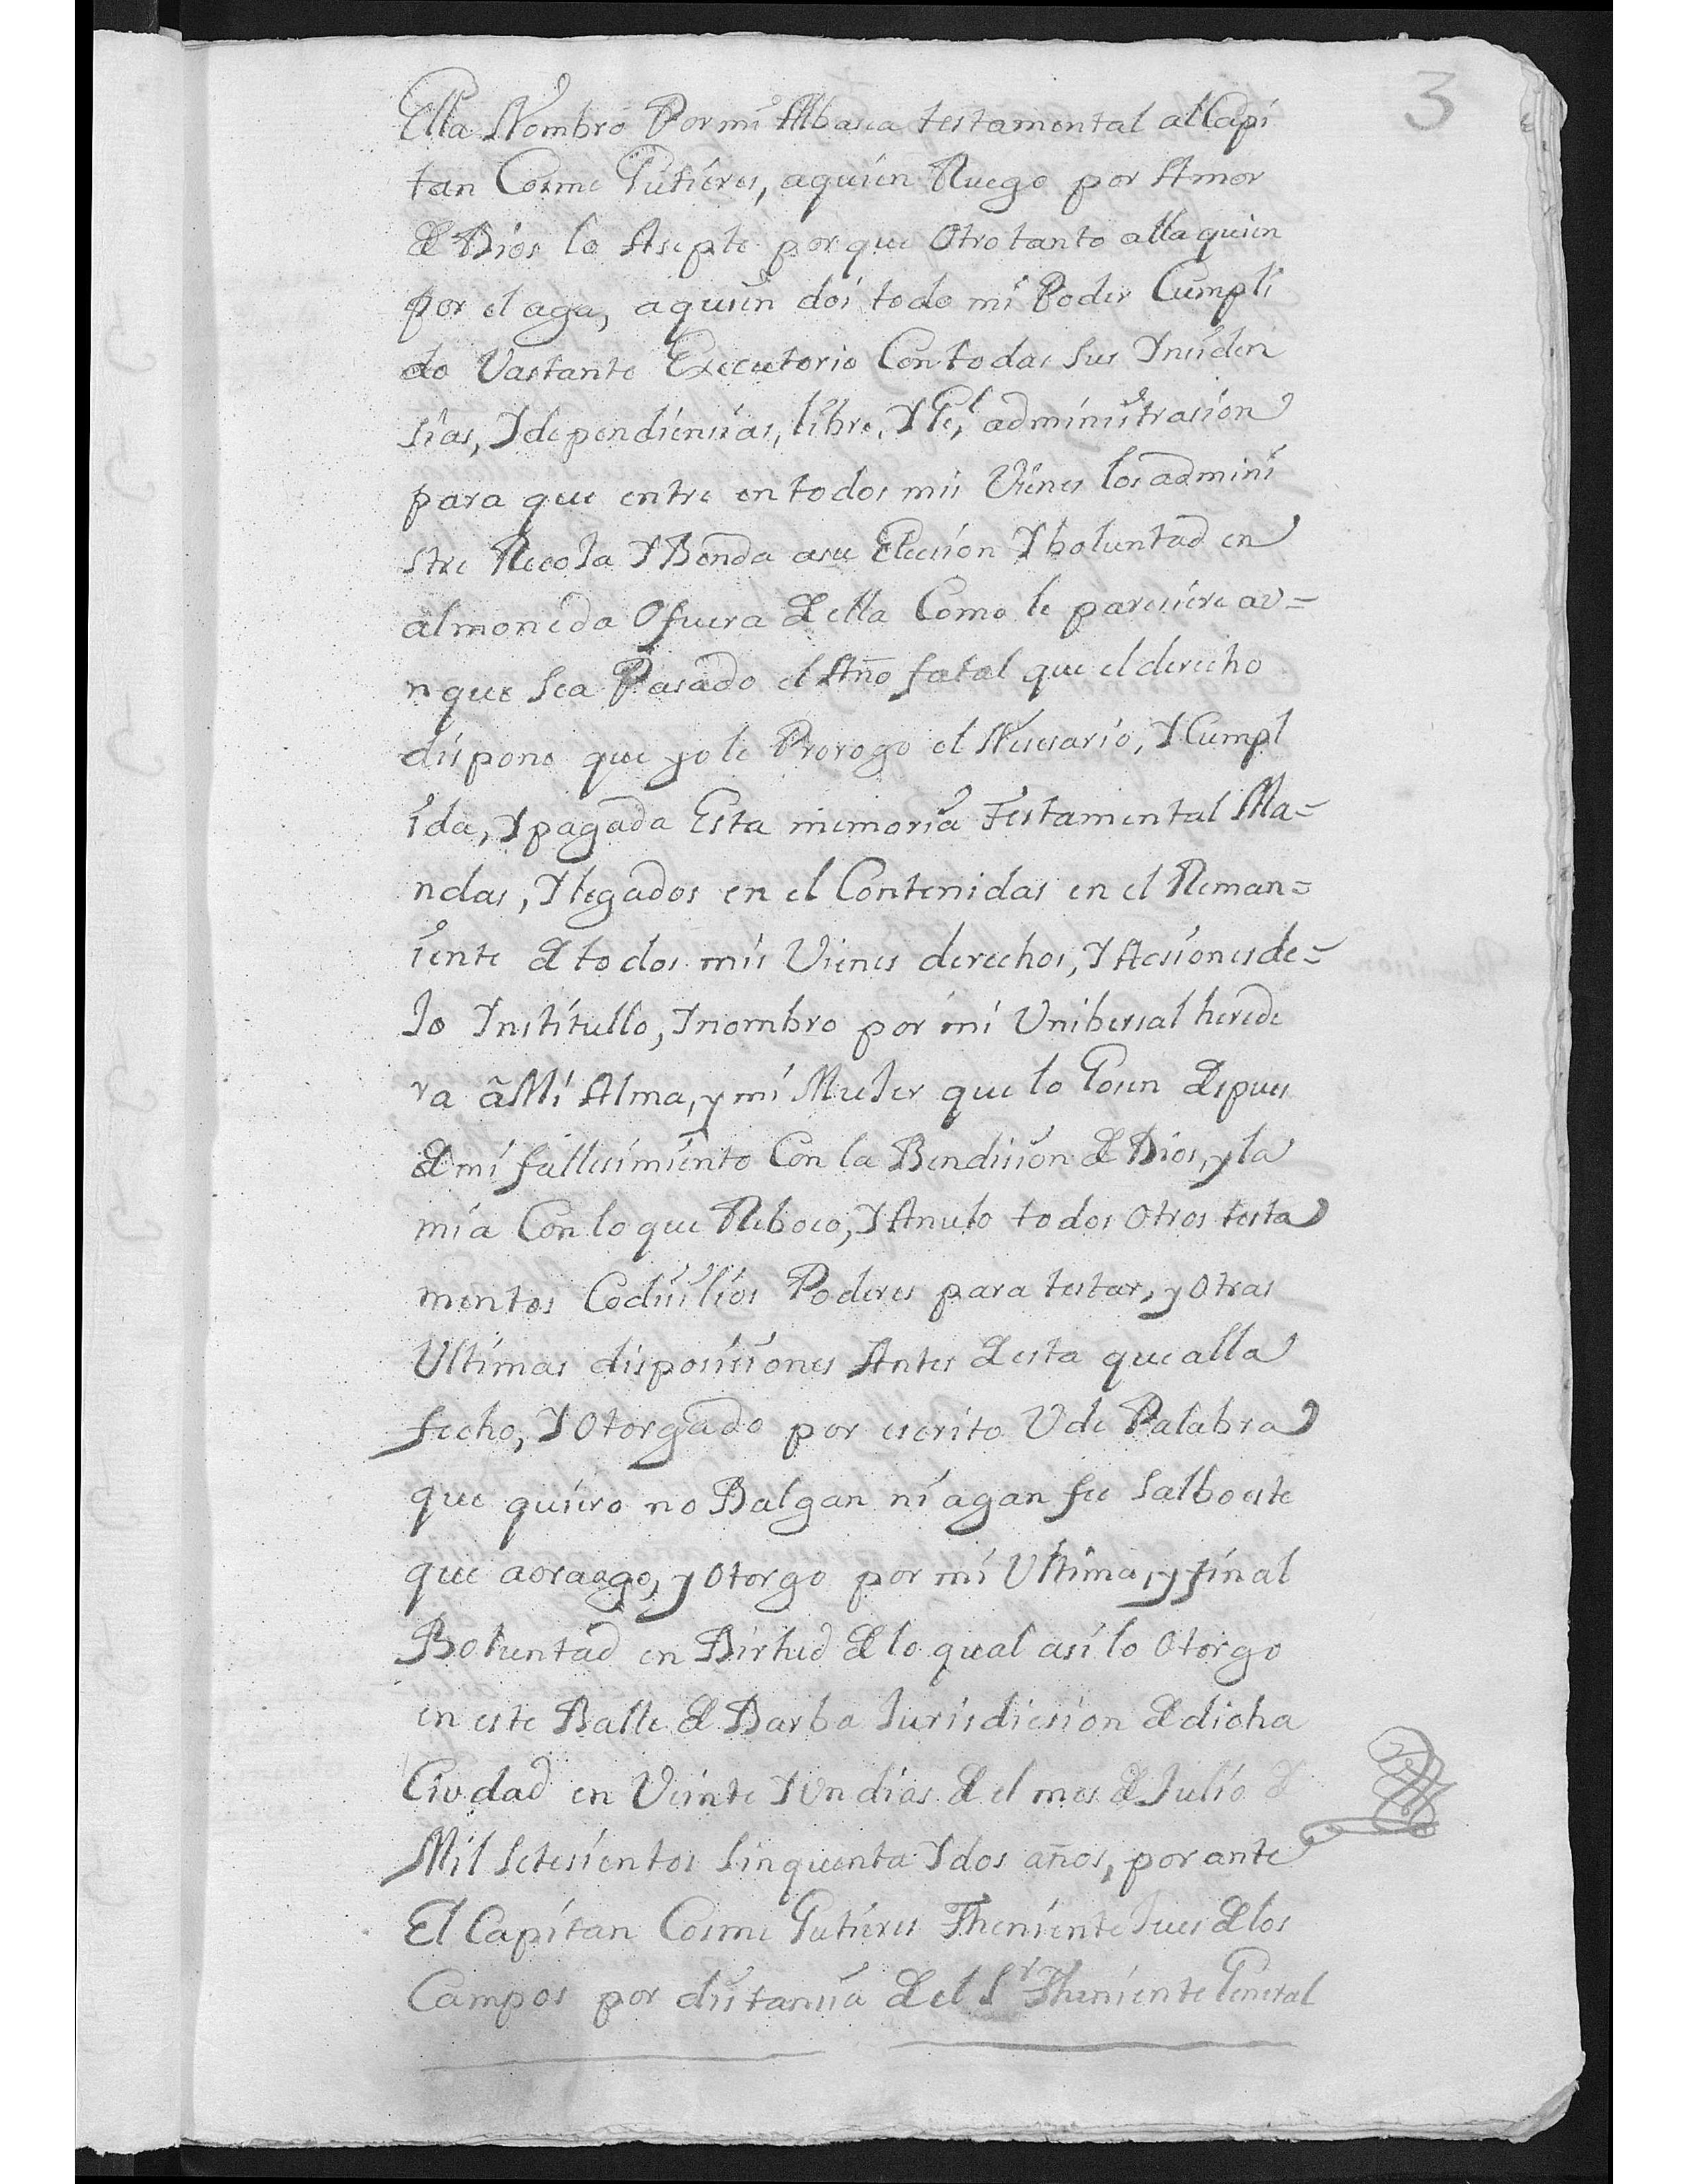 3
Ella Nombro Por mi Albasea testamental al Capi
tan Cosme Gutieres, aquien Ruego por Amor
de Dios lo Asepte por que Otro tanto alla quien
por el aga, aquien doi todo mi Poder Cumpli
do Vastante Executorio Con todas sus Ynsiden
sias, Y dependiensias, libre, Y Gel, administrasion
para que entre en todos mis Vienes los admini
stre Recoja Y Benda asu Elecsion Y boluntad en
almoneda O fuera de ella Como le paresiere av=
nque sea Pasado el Año fatal que el derecho
dispone que yo le Prorogo el Nesesario, Y Cumpl
ida, Y pagada Esta memoria Testamental Ma=
ndas, Y legados en el Contenidas en el Reman=
iente de todos mis Vienes derechos, Y Acsiones de=
Jo Ynstitullo, Y nombro por mi Unibersal herede
ra ã Mi Alma, y mi Mujer que lo Gosen despues
de mi fallesimiento Con la Bendision de Dios, y la
mia Con lo que Reboco, Y Anulo todos Otros testa
mentos Codisilios Poderes para testar, y Otras
Ultimas disposisiones Antes desta que alla
fecho, Y Otorgado por escrito U de Palabra
que quiero no Balgan ni agan fee salbo este
que aora ago, y Otorgo por mi Ultima, y final
Boluntad en Birtud de lo qual asi lo Otorgo
en este Balle de Barba Jurisdicsion de dicha
Ciudad en Veinte Y Un dias de el mes de Julio de
Mil Setesientos sinquenta Y dos años, por ante
El Capitan Cosme Gutieres Theniente Jues de los
Campos por distansia de el Sr Theniente General